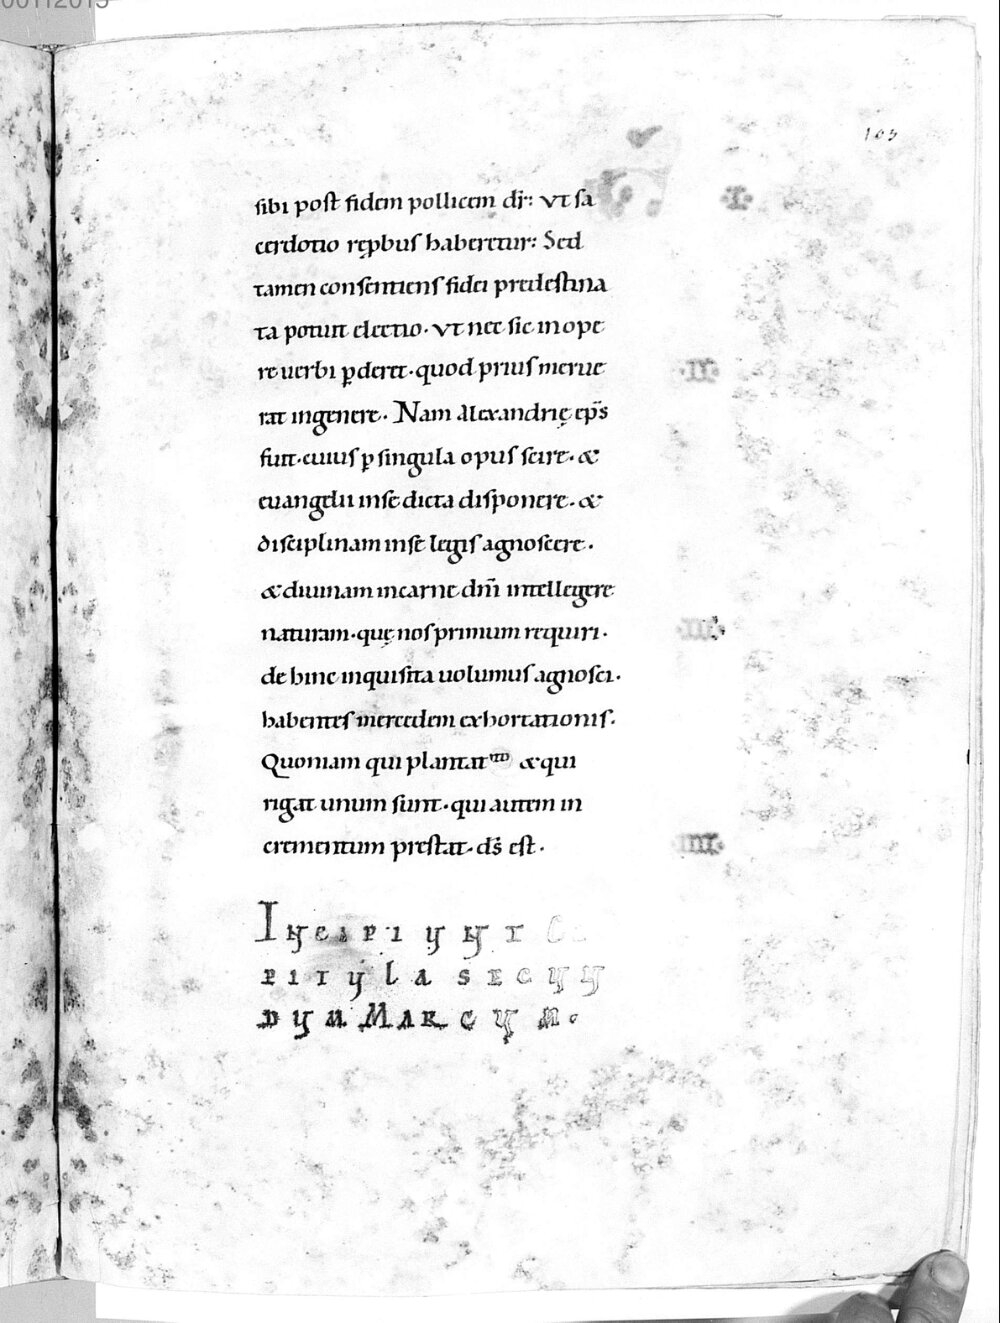 00112015
103
sibi post fidem pollicem dr̄: vt sa
cerdotio rępbus haberetur: Sed
tamen consentiens fidei predestina
ta potuit electio· vt nec sic in ope
re uerbi ꝑderet· quod prius merue
rat in genere· Nam alexandrię ep̄s
fuit· cuius ꝑ singula opus scire· &
euangelii in se dicta disponere· &
disciplinam in se legis agnoscere·
& diuinam in carne dn̄i intellegere
naturam· quę nos primum requiri·
de hinc inquisita uolumus agnosci·
habentes mercedem exhortationis·
Quoniam qui plantat & qui
rigat unum sunt· qui autem in
crementum prestat· ds̄ est·
INCIPIUNT CA
PITULA SECUN
DUM MARCUM·
·I·
·II·
·III·
·IIII·